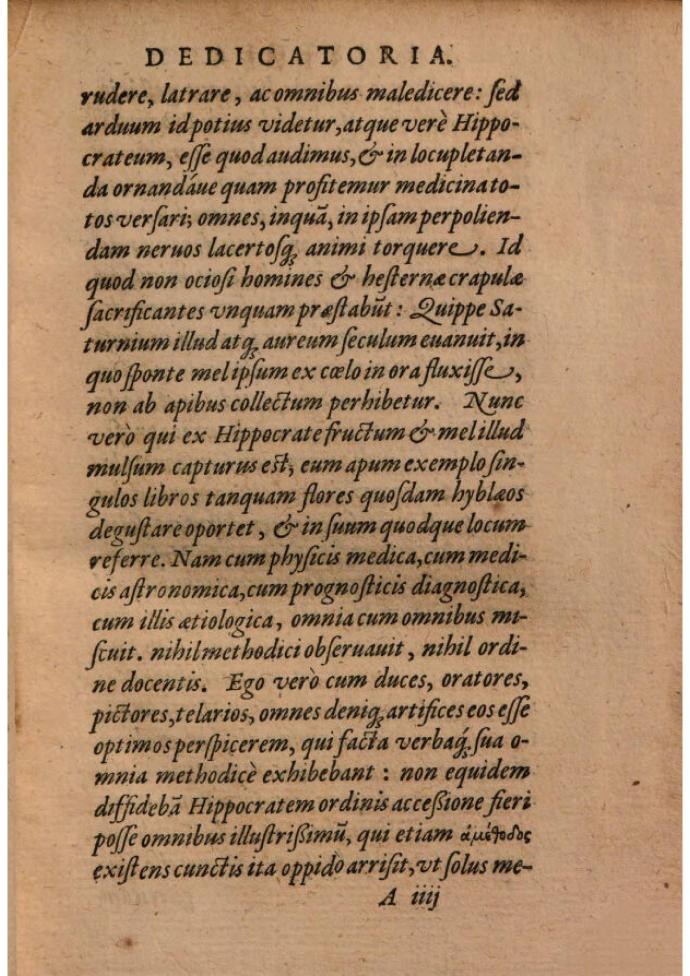 DEDICATORIA.
rudere, latrare, ac omnibus maledicere: ſed
arduum id potius videtur, atque verè Hippo-
crateum, eſſe quod audimus, & in locupletan-
da ornandáue quam profitemur medicina to-
tos verſari; omnes, inquā, in ipſam perpolien-
dam neruos lacertoſq; animi torquere. Id
quod non ocioſi homines & heſternæ crapulæ
ſacrificantes vnquam præſtabūt: Quippe Sa-
turnium illud atq; aureum ſeculum euanuit, in
quo ſponte mel ipſum ex cœlo in ora fluxiſſe,
non ab apibus collectum perhibetur. Nunc
verò qui ex Hippocrate fructum & mel illud
mulſum capturus eſt; eum apum exemplo ſin-
gulos libros tanquam flores quoſdam hyblæos
deguſtare oportet, & in ſuum quodque locum
referre. Nam cum phyſicis medica, cum medi-
cis aſtronomica, cum prognoſticis diagnoſtica,
cum illis ætiologica, omnia cum omnibus mi-
ſcuit. nihil methodici obſeruauit, nihil ordi-
ne docentis. Ego verò cum duces, oratores,
pictores, telarios, omnes deniq; artifices eos eſſe
optimos perſpicerem, qui facta verbaq́; ſua o-
mnia methodicè exhibebant: non equidem
diffidebā Hippocratem ordinis acceßione fieri
poſſe omnibus illuſtrißimū, qui etiam ἀμέθοδος
exiſtens cunctis ita oppidò arriſit, vt ſolus me-
A iiij